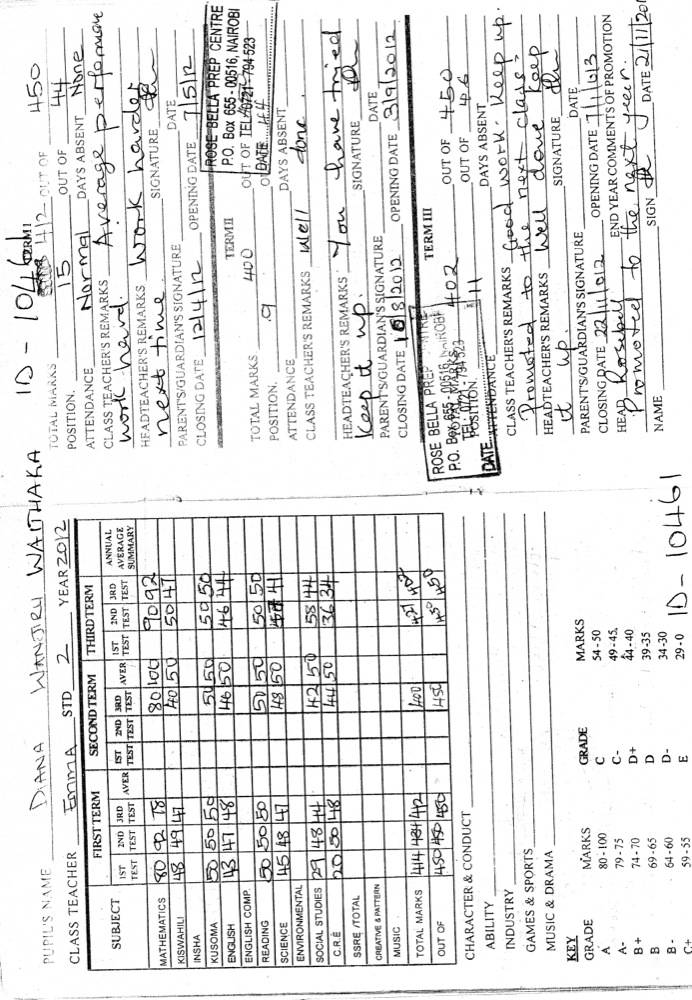 PUPIL'S NAME DIANA WANJIRU WAITHAKA
CLASS TEACHER Emma STD 2 YEAR 2012
SUBJECT FIRST TERM SECOND TERM THIRD TERM ANNUAL AVERAGE SUMMARY
1ST TEST 2ND TEST 3RD TEST AVER 1ST TEST 2ND TEST 3RD TEST AVER 1ST TEST 2ND TEST 3RD TEST
MATHEMATICS 80 92 78 80 100 90 92
KISWAHILI 48 49 47 40 50 50 47
INSHA
KUSOMA 50 50 50 50 50 50 50
ENGLISH 43 47 48 46 50 46 44
ENGLISH COMP.
READING 50 50 50 50 50 50 50
SCIENCE 45 48 47 48 50 41
ENVIRONMENTAL
SOCIAL STUDIES 29 48 44 42 50 58 44
C.R.E 20 50 48 44 50 36 34
SSRE /TOTAL
CREATIVE & PATTERN
MUSIC
TOTAL MARKS 414 484 412 400 421 402
OUT OF 450 450 450 450 450 450
CHARACTER & CONDUCT
ABILITY
INDUSTRY
GAMES & SPORTS
MUSIC & DRAMA
KEY
GRADE MARKS GRADE MARKS
A 80-100 C 54-50
A- 79-75 C- 49-45
B+ 74-70 D+ 44-40
B 69-65 D 39-35
B- 64-60 D- 34-30
C+ 59-55 E 29-0
ID - 10461
ID - 10461
TERM I
TOTAL MARKS 412 OUT OF 450
POSITION. 15 OUT OF 44
ATTENDANCE Normal DAYS ABSENT None
CLASS TEACHER'S REMARKS Average performance
work hard.
HEADTEACHER'S REMARKS Work harder
next time SIGNATURE
PARENT'S/GUARDIAN'S SIGNATURE DATE
CLOSING DATE 12/4/12 OPENING DATE 7/5/12
ROSE BELLA PREP CENTRE
P.O. Box 655 - 00516, NAIROBI
TEL: 0721-794 523
DATE
TERM II
TOTAL MARKS 400 OUT OF
POSITION. 9 44
ATTENDANCE DAYS ABSENT
CLASS TEACHER'S REMARKS Well done.
HEADTEACHER'S REMARKS You have tried
Keep it up. SIGNATURE
PARENT'S/GUARDIAN'S SIGNATURE DATE
CLOSING DATE 10/8/2012 OPENING DATE 3/9/2012
TERM III
ROSE BELLA PREP CENTRE
P.O. Box 655 - 00516, NAIROBI
TEL: 0721-794 523
DATE
TOTAL MARKS 402 OUT OF 450
POSITION. 11 OUT OF 46
ATTENDANCE DAYS ABSENT
CLASS TEACHER'S REMARKS Good work. Keep up.
Promoted to the next class.
HEADTEACHER'S REMARKS Well done keep
it up. SIGNATURE
PARENT'S/GUARDIAN'S SIGNATURE DATE
CLOSING DATE 22/11/012 OPENING DATE 7/1/013
HEAD END YEAR COMMENTS OF PROMOTION
Promoted to the next year.
NAME SIGN DATE